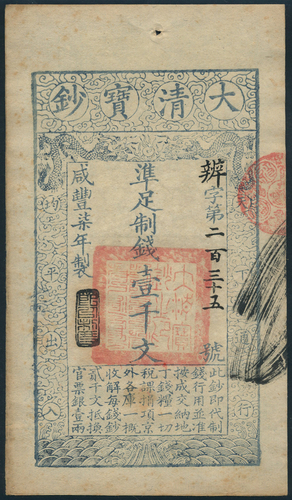 大清寶鈔
辨字第二百三十五號
準足制錢壹千文
咸豐柒年製
此鈔即代制
錢行用並准
按成交納地
丁錢糧一切
稅課捐項京
外各庫一概
收解每錢鈔
貳千文抵換
官票銀壹兩
均平出入
通行